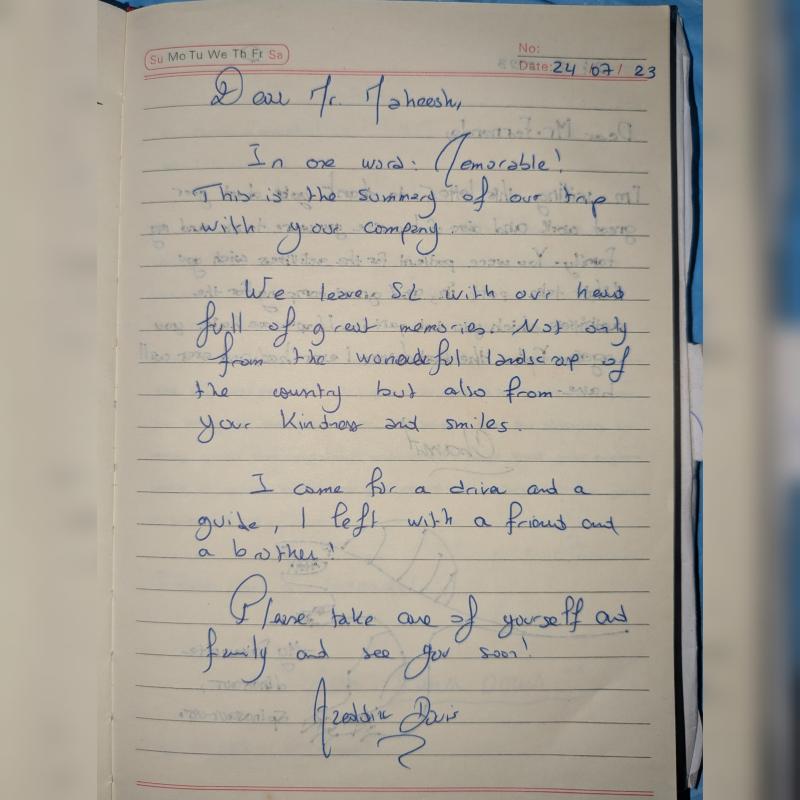 Su Mo Tu We Th Fr Sa
No:
Date: 24 / 07 / 23
Dear Mr. Maheesh,
In one word: Memorable!
This is the summary of our trip
with your company.
We leave S.L with our head
full of great memories. Not only
from the wonderful landscape of
the country but also from
your kindness and smiles.
I come for a driver and a
guide, I left with a friend and
a brother!
Please take care of yourself and
family and see you soon!
Davis